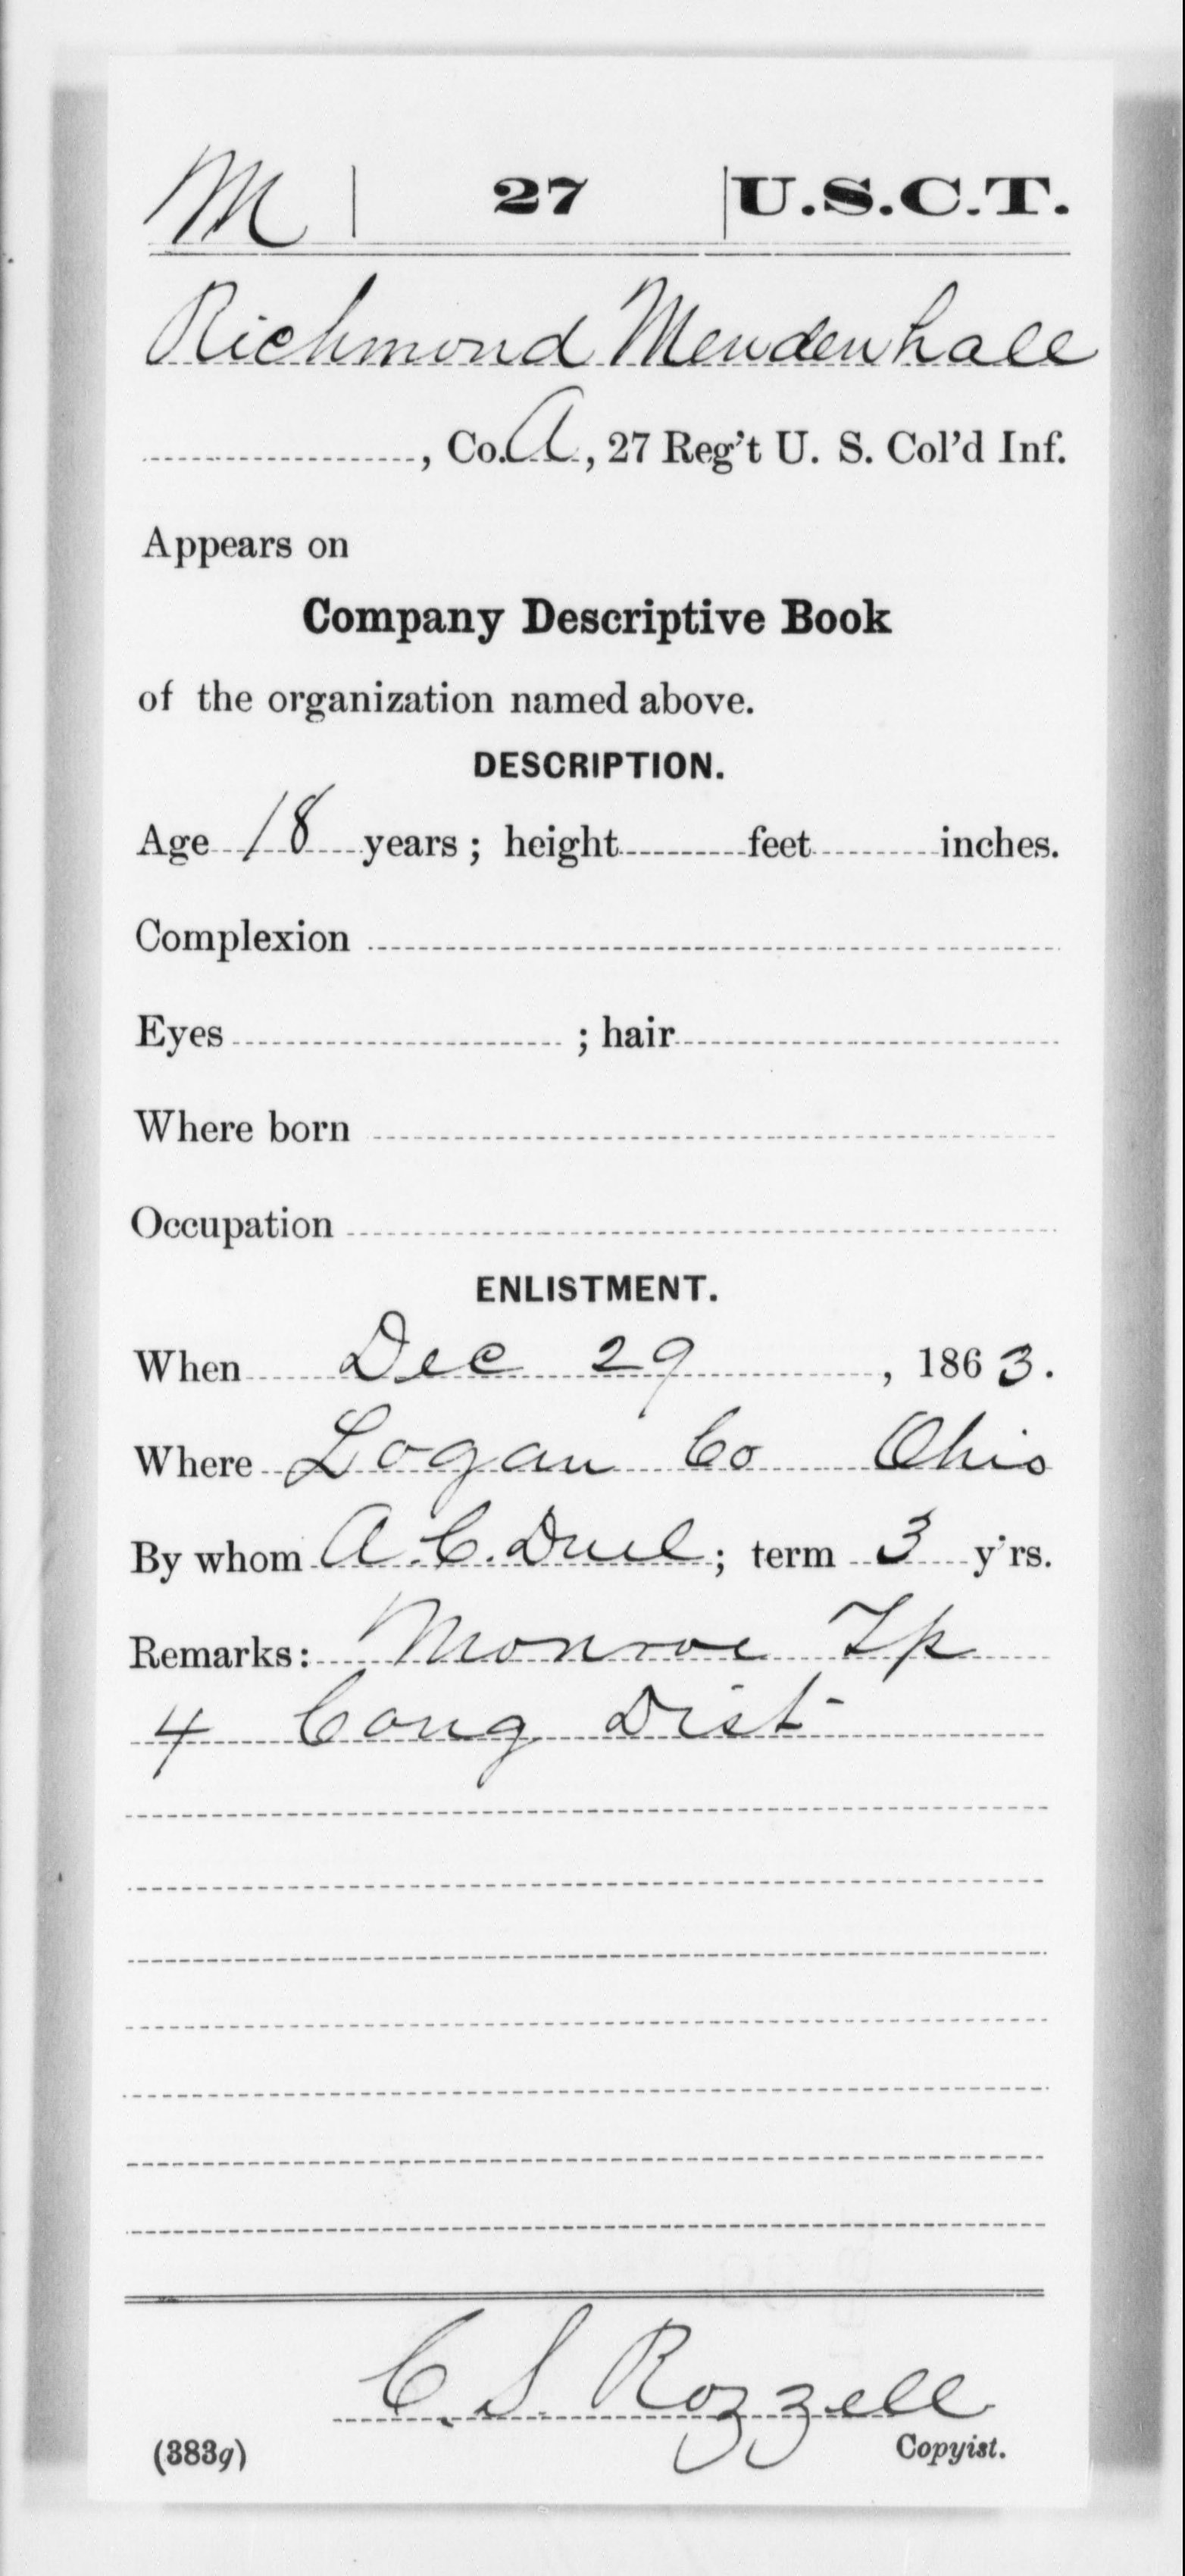 M 27 U.S.C.T.
Richmond Mendenhall
, Co. A, 27 Reg't U. S. Col'd Inf.
Appears on
Company Descriptive Book
of the organization named above.
DESCRIPTION.
Age 18 years; height feet inches.
Complexion
Eyes ; hair
Where born
Occupation
ENLISTMENT.
When Dec 29, 1863.
Where Logan Co Ohio
By whom A. C. Duel; term 3 y'rs.
Remarks: Monroe Tp
4 Cong Dist
C. S. Rozzell
(383g) Copyist.